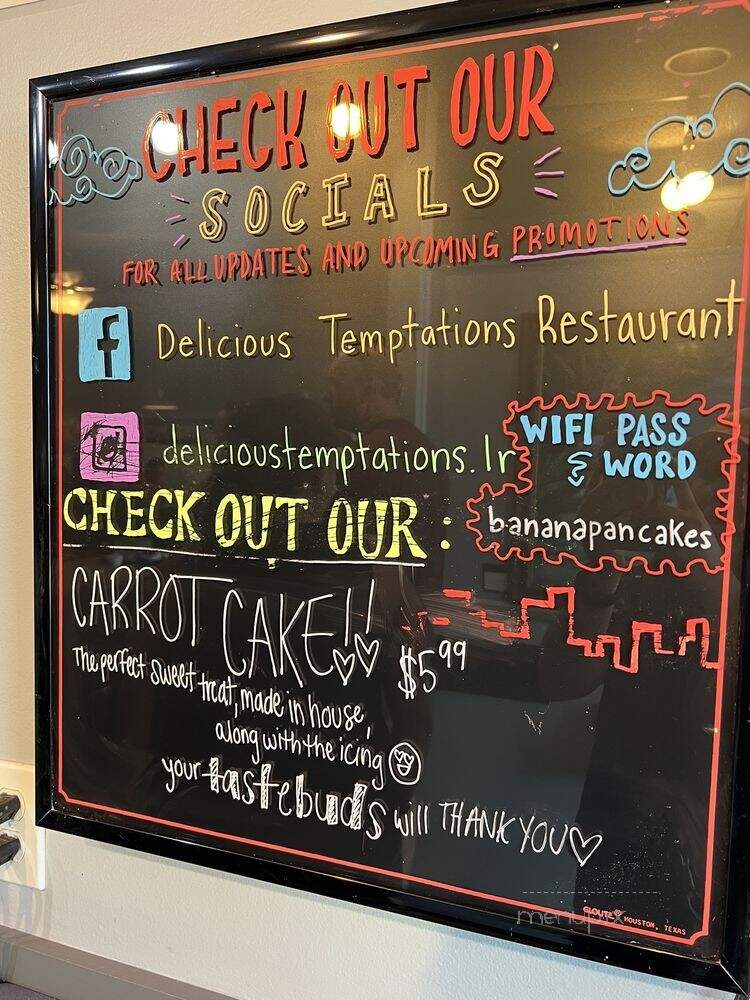 CHECK OUT OUR
SOCIALS
FOR ALL UPDATES AND UPCOMING PROMOTIONS
f Delicious Temptations Restaurant
delicioustemptations.lr
WIFI PASS
WORD
bananapancakes
CHECK OUT OUR :
CARROT CAKE!!
$5.99
The perfect sweet treat, made in house,
along with the icing
your tastebuds will THANK YOU
menupix
HOUSTON, TEXAS